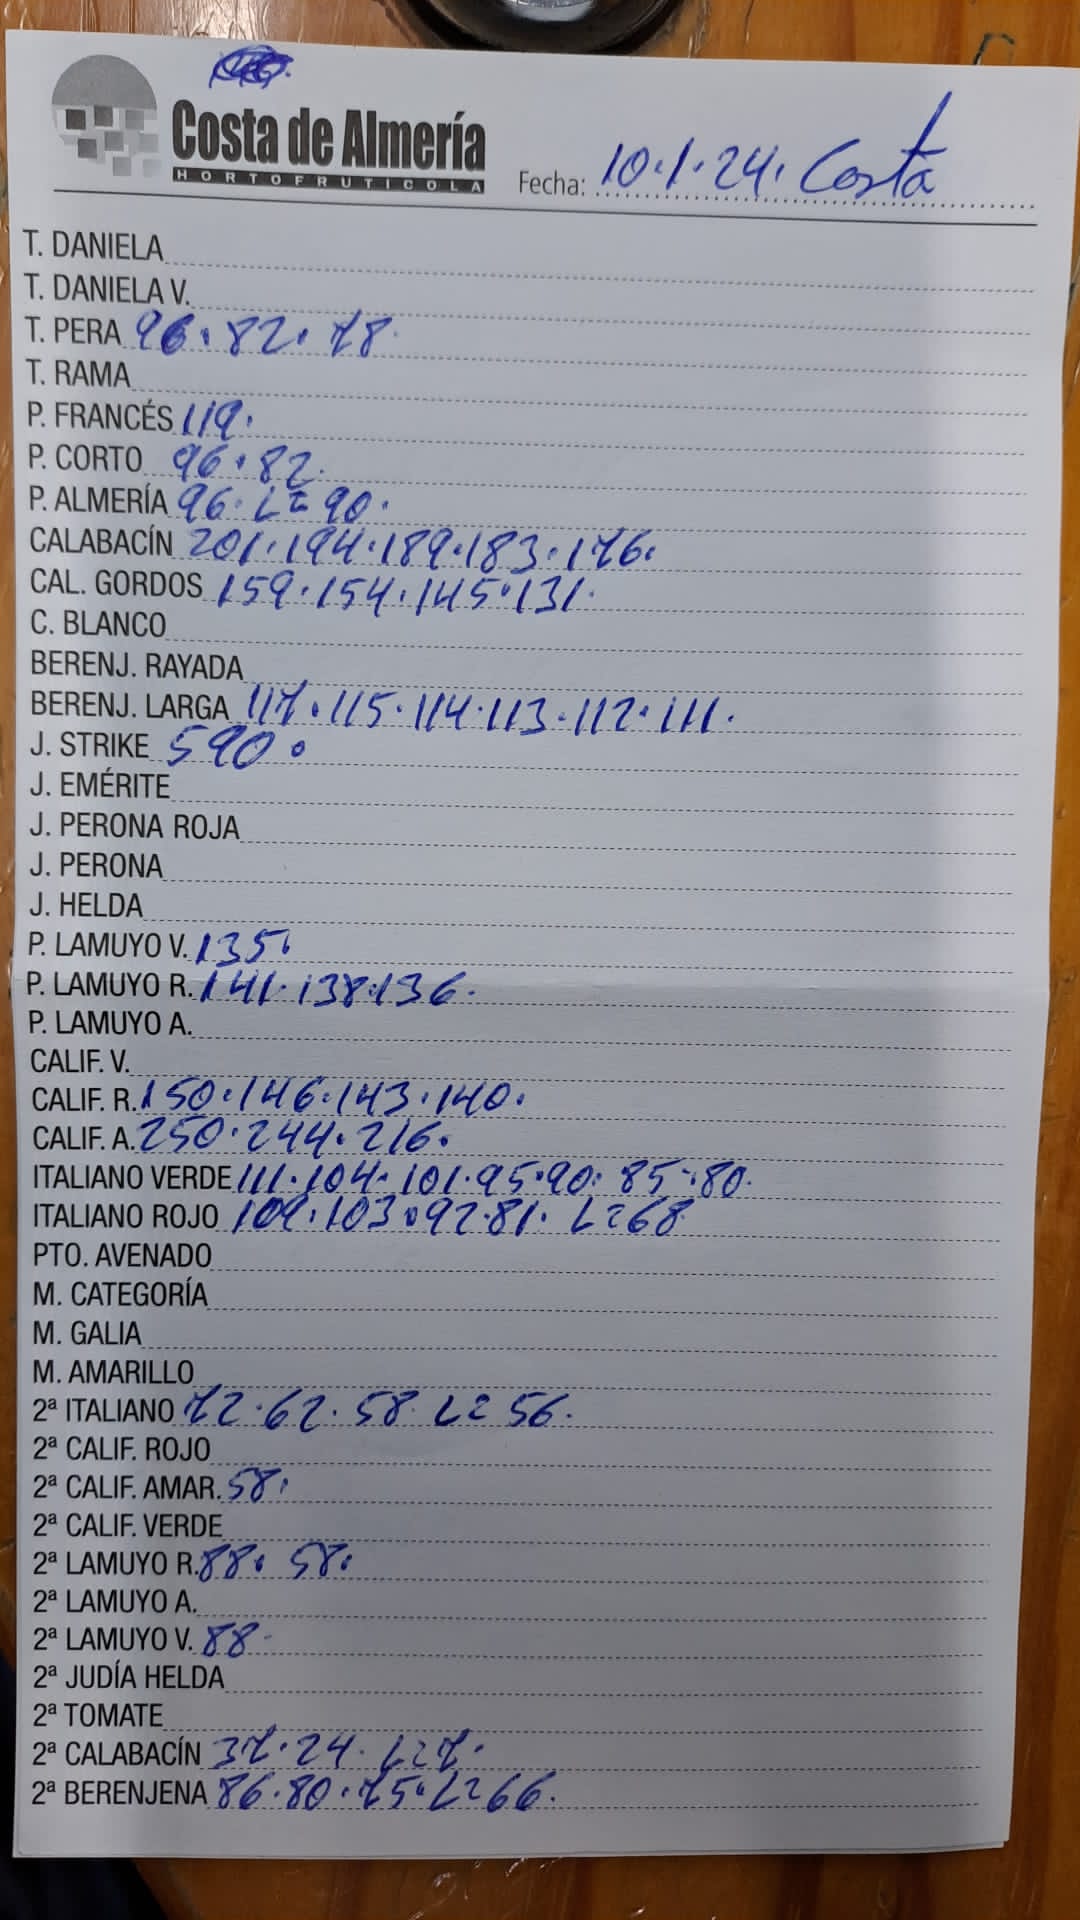 Costa de Almería
HORTOFRUTICOLA
Fecha: 10.1.24. Costa
T. DANIELA
T. DANIELA V.
T. PERA 96.82.78.
T. RAMA
P. FRANCÉS 119.
P. CORTO 96.82.
P. ALMERÍA 96. La 90.
CALABACÍN 201.194.189.183.176.
CAL. GORDOS 159.154.145.131.
C. BLANCO
BERENJ. RAYADA
BERENJ. LARGA 117.115.114.113.112.111.
J. STRIKE 590.
J. EMÉRITE
J. PERONA ROJA
J. PERONA
J. HELDA
P. LAMUYO V. 135.
P. LAMUYO R. 141.138.136.
P. LAMUYO A.
CALIF. V.
CALIF. R. 150.146.143.140.
CALIF. A. 250.244.216.
ITALIANO VERDE 111.104.101.95.90.85.80.
ITALIANO ROJO 109.103.92.81. La 68
PTO. AVENADO
M. CATEGORÍA
M. GALIA
M. AMARILLO
2ª ITALIANO 72.62.58 La 56.
2ª CALIF. ROJO
2ª CALIF. AMAR. 58.
2ª CALIF. VERDE
2ª LAMUYO R. 88. 58.
2ª LAMUYO A.
2ª LAMUYO V. 88.
2ª JUDÍA HELDA
2ª TOMATE
2ª CALABACÍN 37.24. La 7.
2ª BERENJENA 86.80.75. La 66.